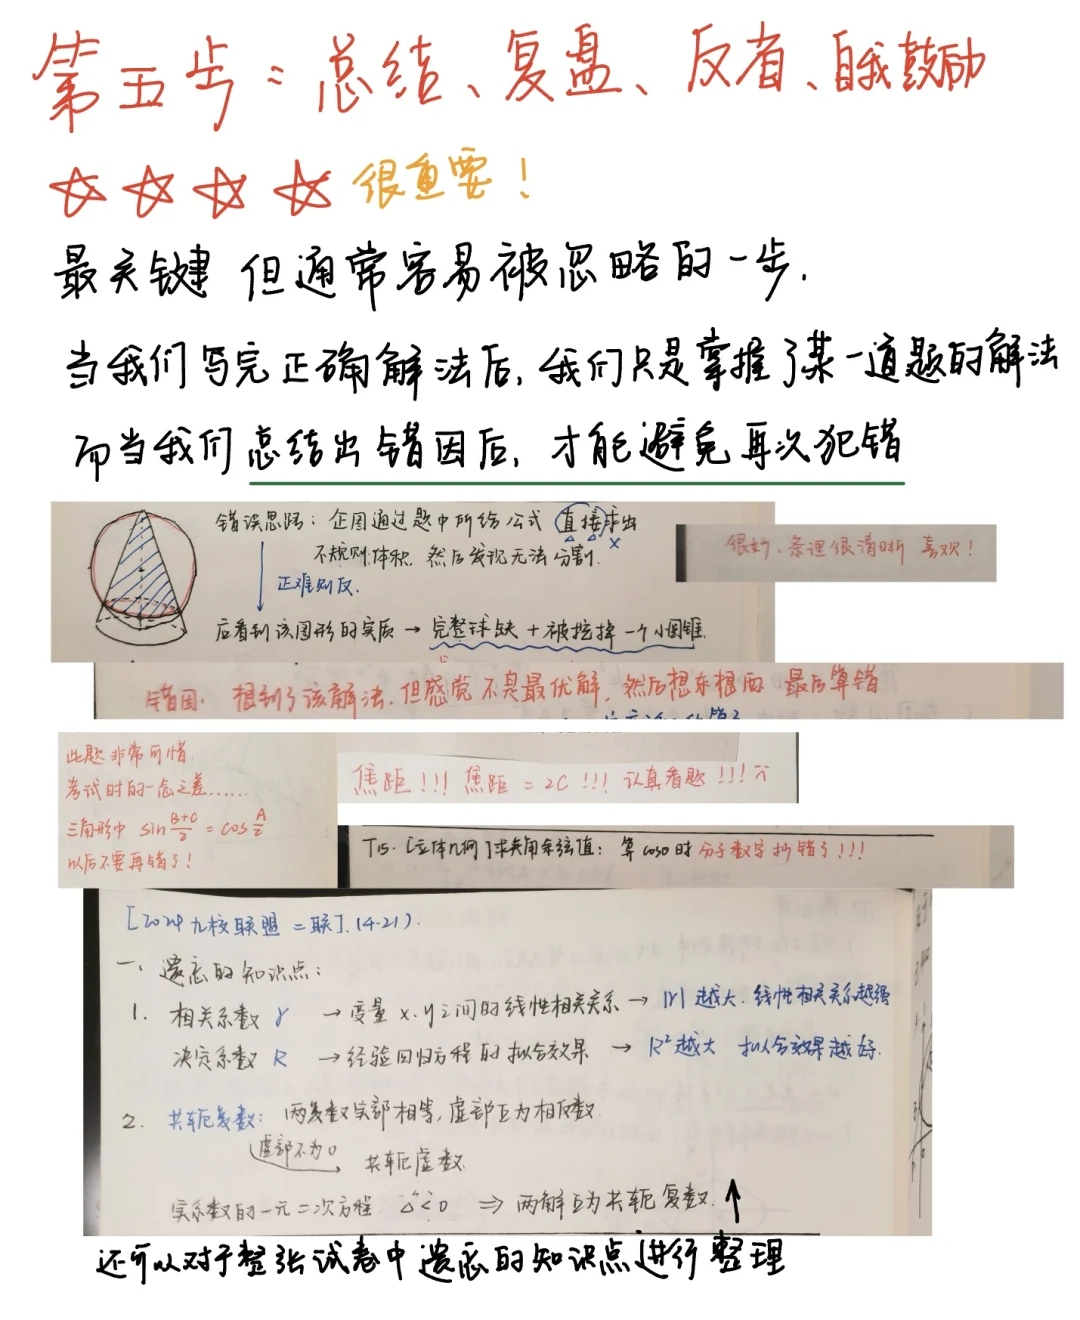 第五步：总结、复盘、反省、自我鼓励
很重要！
最关键 但通常容易被忽略的一步.
当我们写完正确解法后, 我们只是掌握了某一道题的解法
而当我们总结出错因后, 才能避免再次犯错
错误思路：企图通过题中所给公式 直接求出
不规则体积. 然后发现无法分割.
正难则反.
后看到该图形的实质 → 完整球缺 + 被挖掉一个小圆锥.
很好、条理很清晰 喜欢！
错因: 想到了该解法, 但感觉不是最优解, 然后想东想西 最后算错
此题非常可惜.
考试时的一念之差......
三角形中 sin (B+C)/2 = cos A/2
以后不要再错了！
焦距!!! 焦距 = 2C !!! 认真看题 !!!
T15. [立体几何] 求夹角余弦值: 算 cosθ 时 分子数字抄错了!!!
[2024 九校联盟 二联]. (4.21).
一、遗忘的知识点：
1. 相关系数 r → 变量 x.y之间的线性相关关系 → |r| 越大. 线性相关关系越强
决定系数 R → 经验回归方程的拟合效果 → R²越大 拟合效果越好.
2. 共轭复数: 两复数实部相等, 虚部互为相反数
虚部不为0 共轭虚数.
实系数的一元二次方程 Δ<0 ⇒ 两解互为共轭复数.
还可以对于整张试卷中遗忘的知识点进行整理